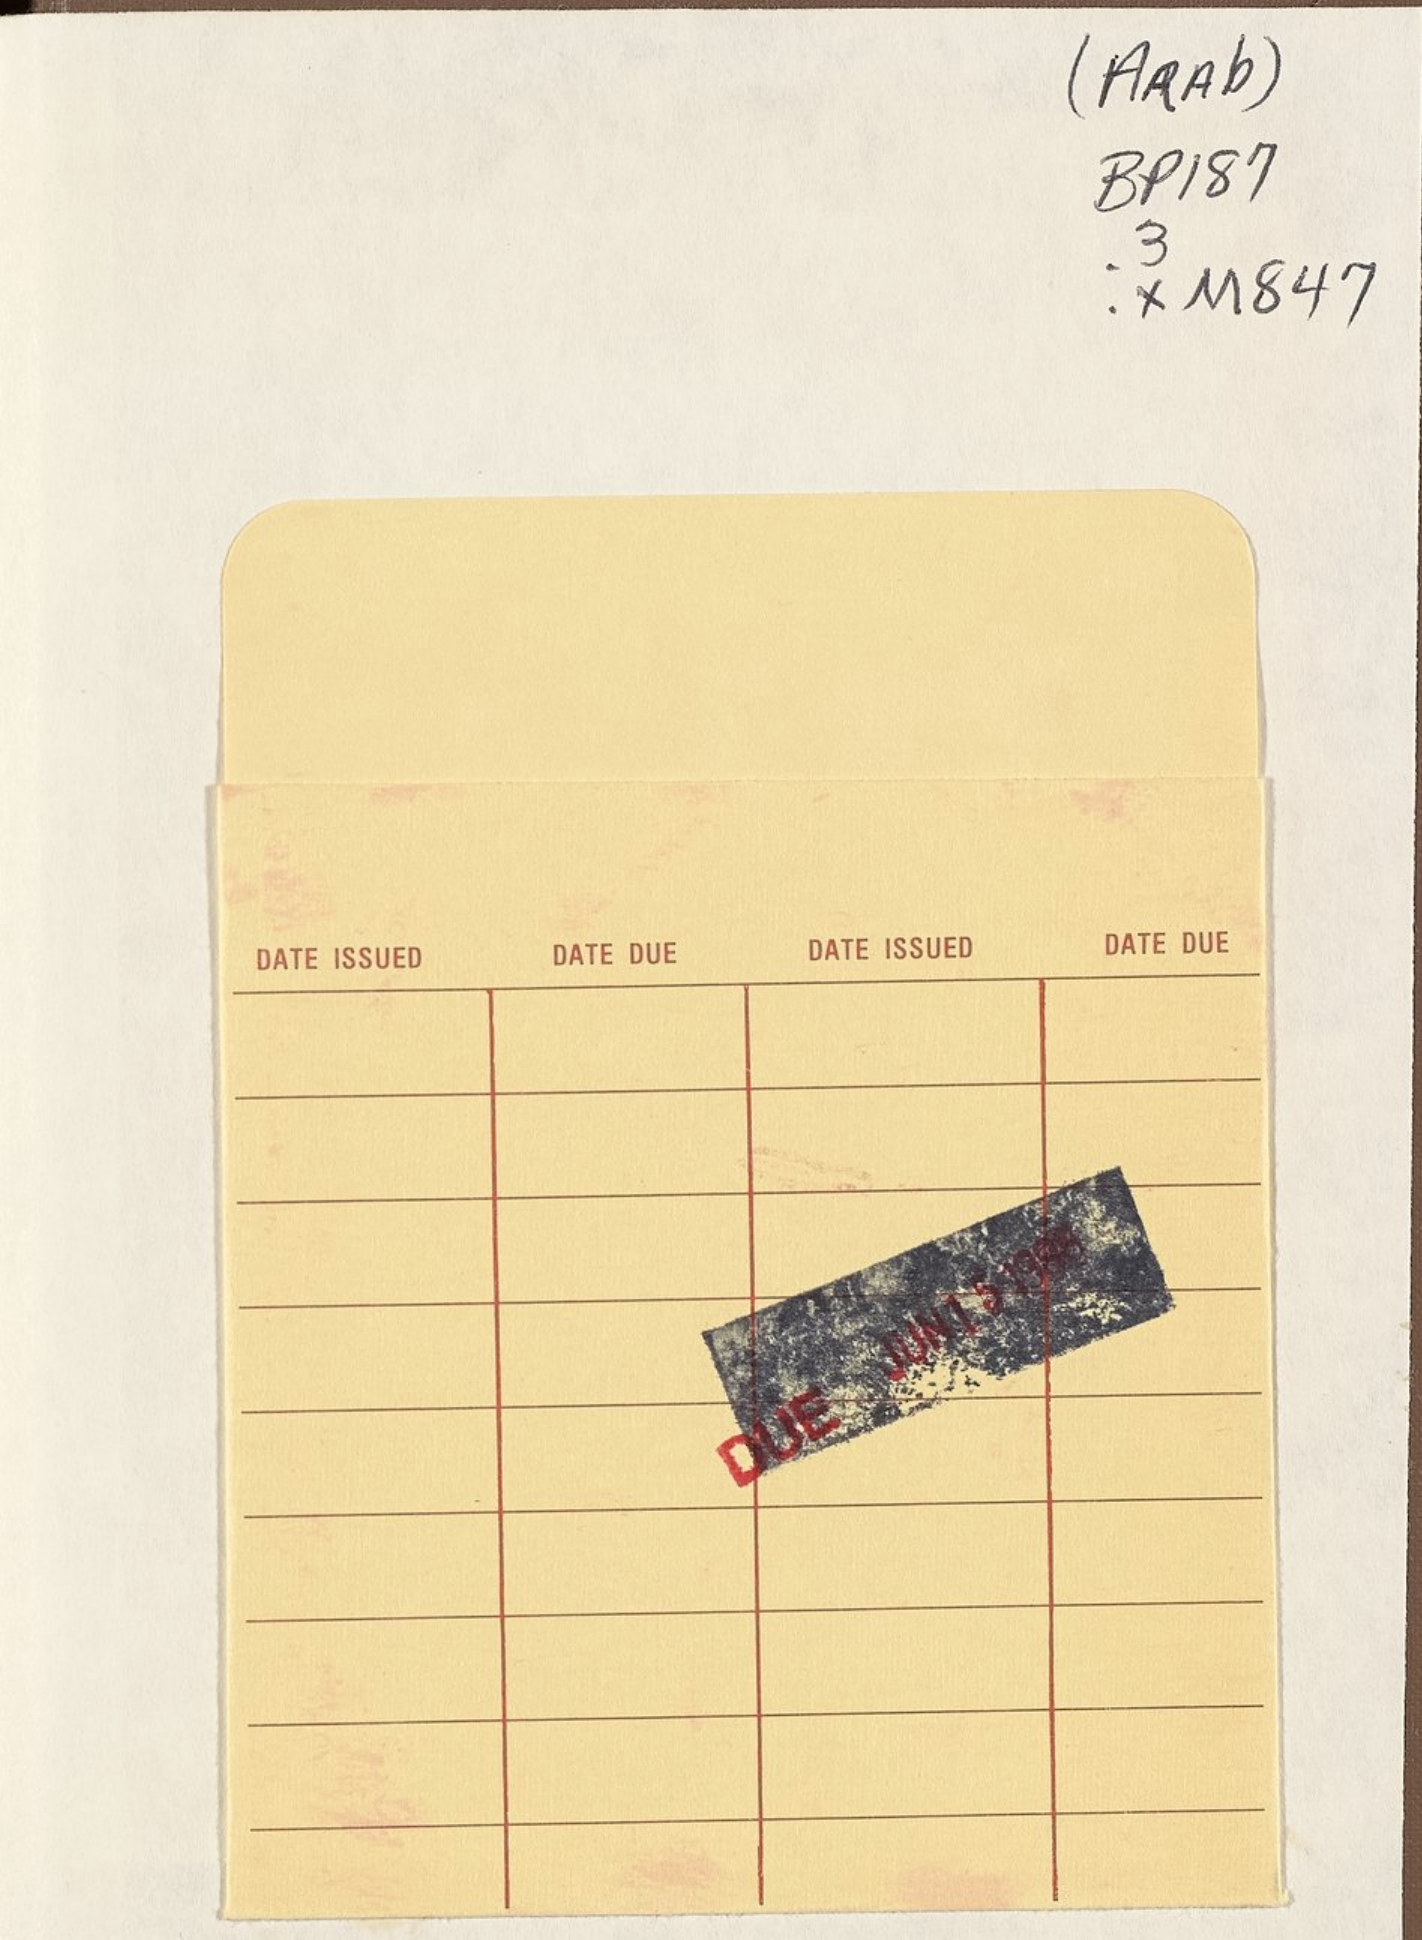 (Arab)
BP187
.3
.xM847
DATE ISSUED DATE DUE DATE ISSUED DATE DUE
DUE JUN 15